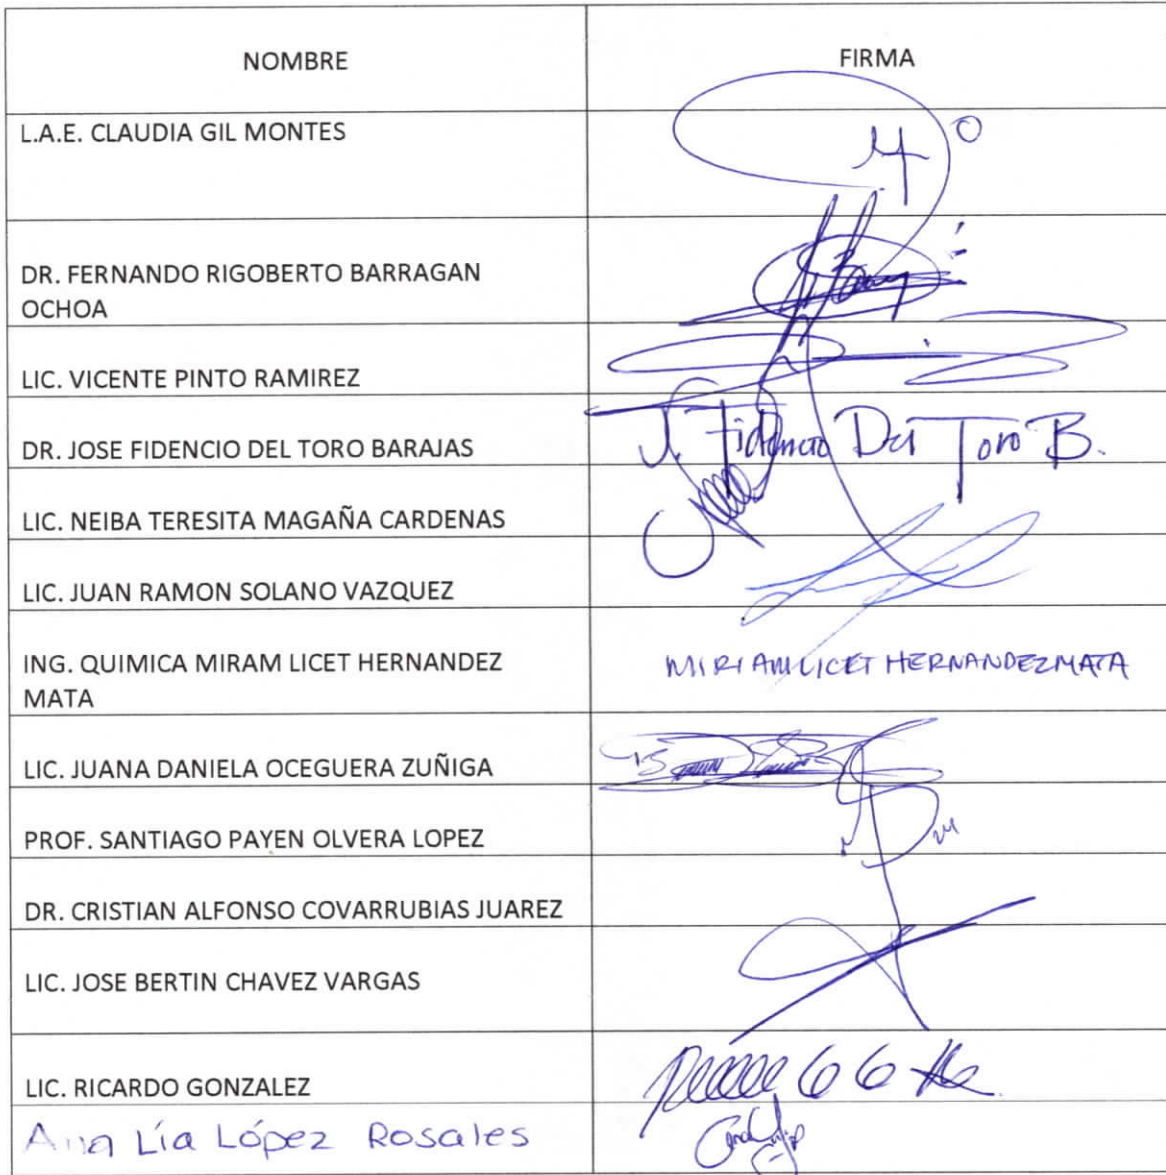 NOMBRE FIRMA
L.A.E. CLAUDIA GIL MONTES
DR. FERNANDO RIGOBERTO BARRAGAN
OCHOA
LIC. VICENTE PINTO RAMIREZ
DR. JOSE FIDENCIO DEL TORO BARAJAS J. Fidencio Del Toro B.
LIC. NEIBA TERESITA MAGAÑA CARDENAS
LIC. JUAN RAMON SOLANO VAZQUEZ
ING. QUIMICA MIRAM LICET HERNANDEZ MIRIAM LICET HERNANDEZ MATA
MATA
LIC. JUANA DANIELA OCEGUERA ZUÑIGA
PROF. SANTIAGO PAYEN OLVERA LOPEZ
DR. CRISTIAN ALFONSO COVARRUBIAS JUAREZ
LIC. JOSE BERTIN CHAVEZ VARGAS
LIC. RICARDO GONZALEZ
Ana Lía López Rosales